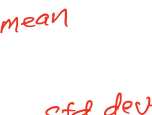 mean
std dev